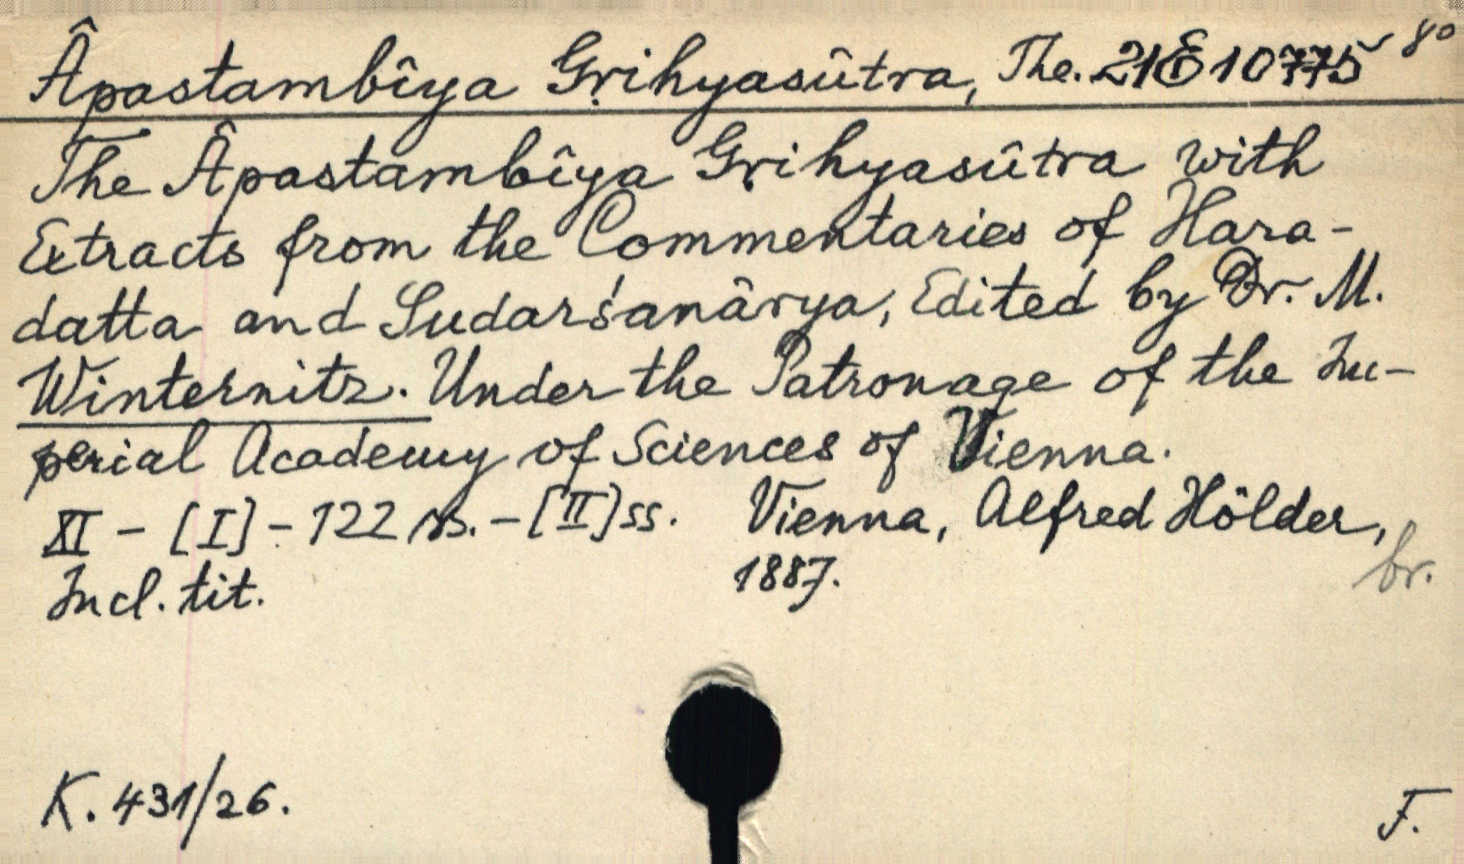 Âpastambîya Gṛihyasûtra, The. 21E10775 8º
The Âpastambîya Gṛihyasûtra with
Extracts from the Commentaries of Hara-
datta and Sudarśanârya, Edited by Dr. M.
Winternitz. Under the Patronage of the Im-
perial Academy of Sciences of Vienna.
XI - [I] - 122 ss. - [II] ss. Vienna, Alfred Hölder,
Incl. tit. 1887. br.
K. 431/26. F.